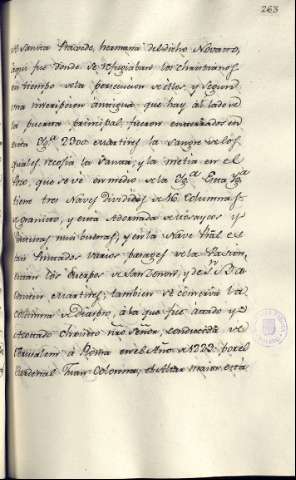 263
de Santa Praxede, hermana del dicho Novacio,
aqui fue donde se refugiaban los christianos
en tiempo de la persecucion de ellos y segun
una inscripcion antigua que hay al lado de
la puerta principal fueron enterrados en
esta Ygª 2300 martires la sangre de los
quales recogia la Santa, y la metia en el
Pozo, que se vé en medio de la Ygª Esta Ygª
tiene tres Naves divididas de 16 Columnas
de granito, y esta adornada de mosaycos y
pinturas mui buenas; y en la Nave
estan Pintados varios parages de la Pasion,
estan los cuerpos de San Zenon, y de Sn
martires; tambien se conserva la
columna de Diaspro, á la que fue atado y
azotado Christo nro Señor, conducida de
Jerusalem á Roma en el Año de 1223 por el
Cardenal Juan Colonna, el Altar maior está